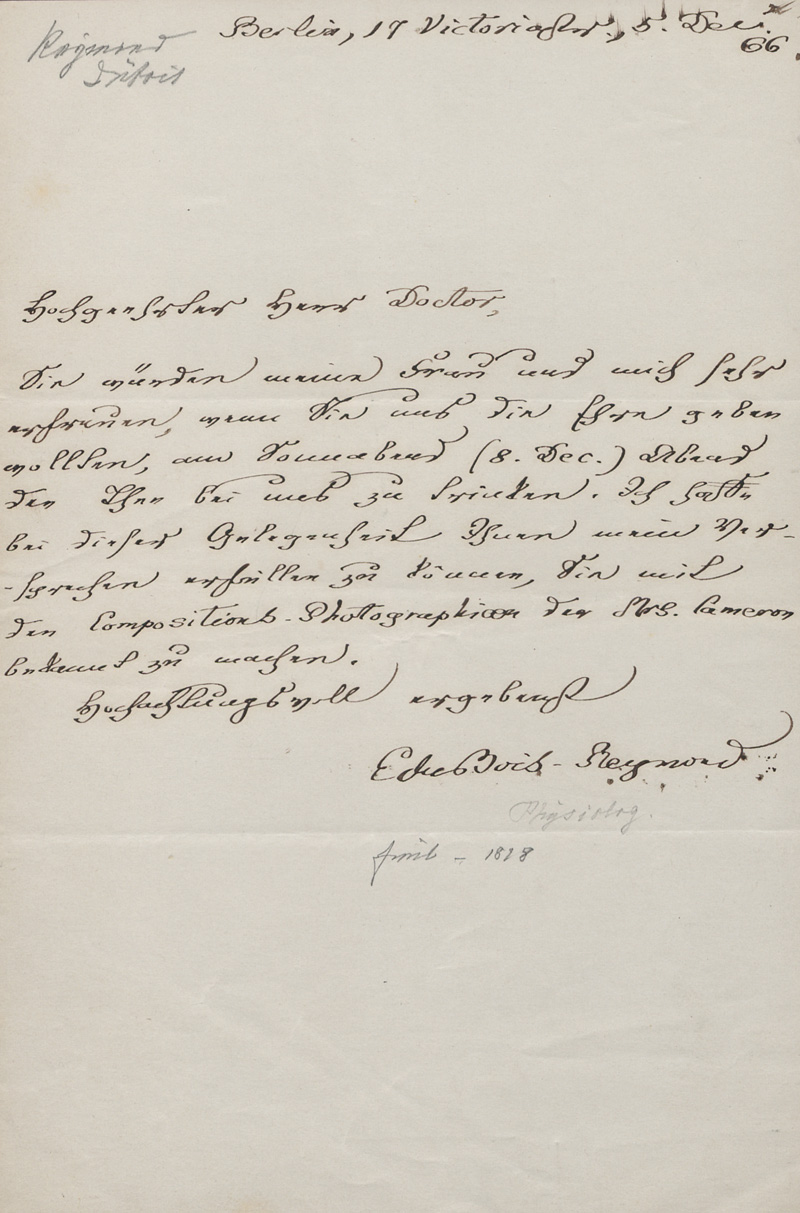 Raymond
Dubois
Berlin, 17 Victoriastr., 5. Dec.
66
Hochgeehrter Herr Doctor,
Sie würden meine Frau und mich sehr
erfreuen, wenn Sie uns die Ehre geben
wollten, am Sonnabend (8. Dec.) Abend
den Thee bei uns zu trinken. Ich hoffe
bei dieser Gelegenheit Ihnen mein Ver-
-sprechen erfüllen zu können, Sie mit
den Compositions-Photographien der Mrs. Cameron
bekannt zu machen.
Hochachtungsvoll ergebenst
EduBois-Reymond
Physiolog.
1818